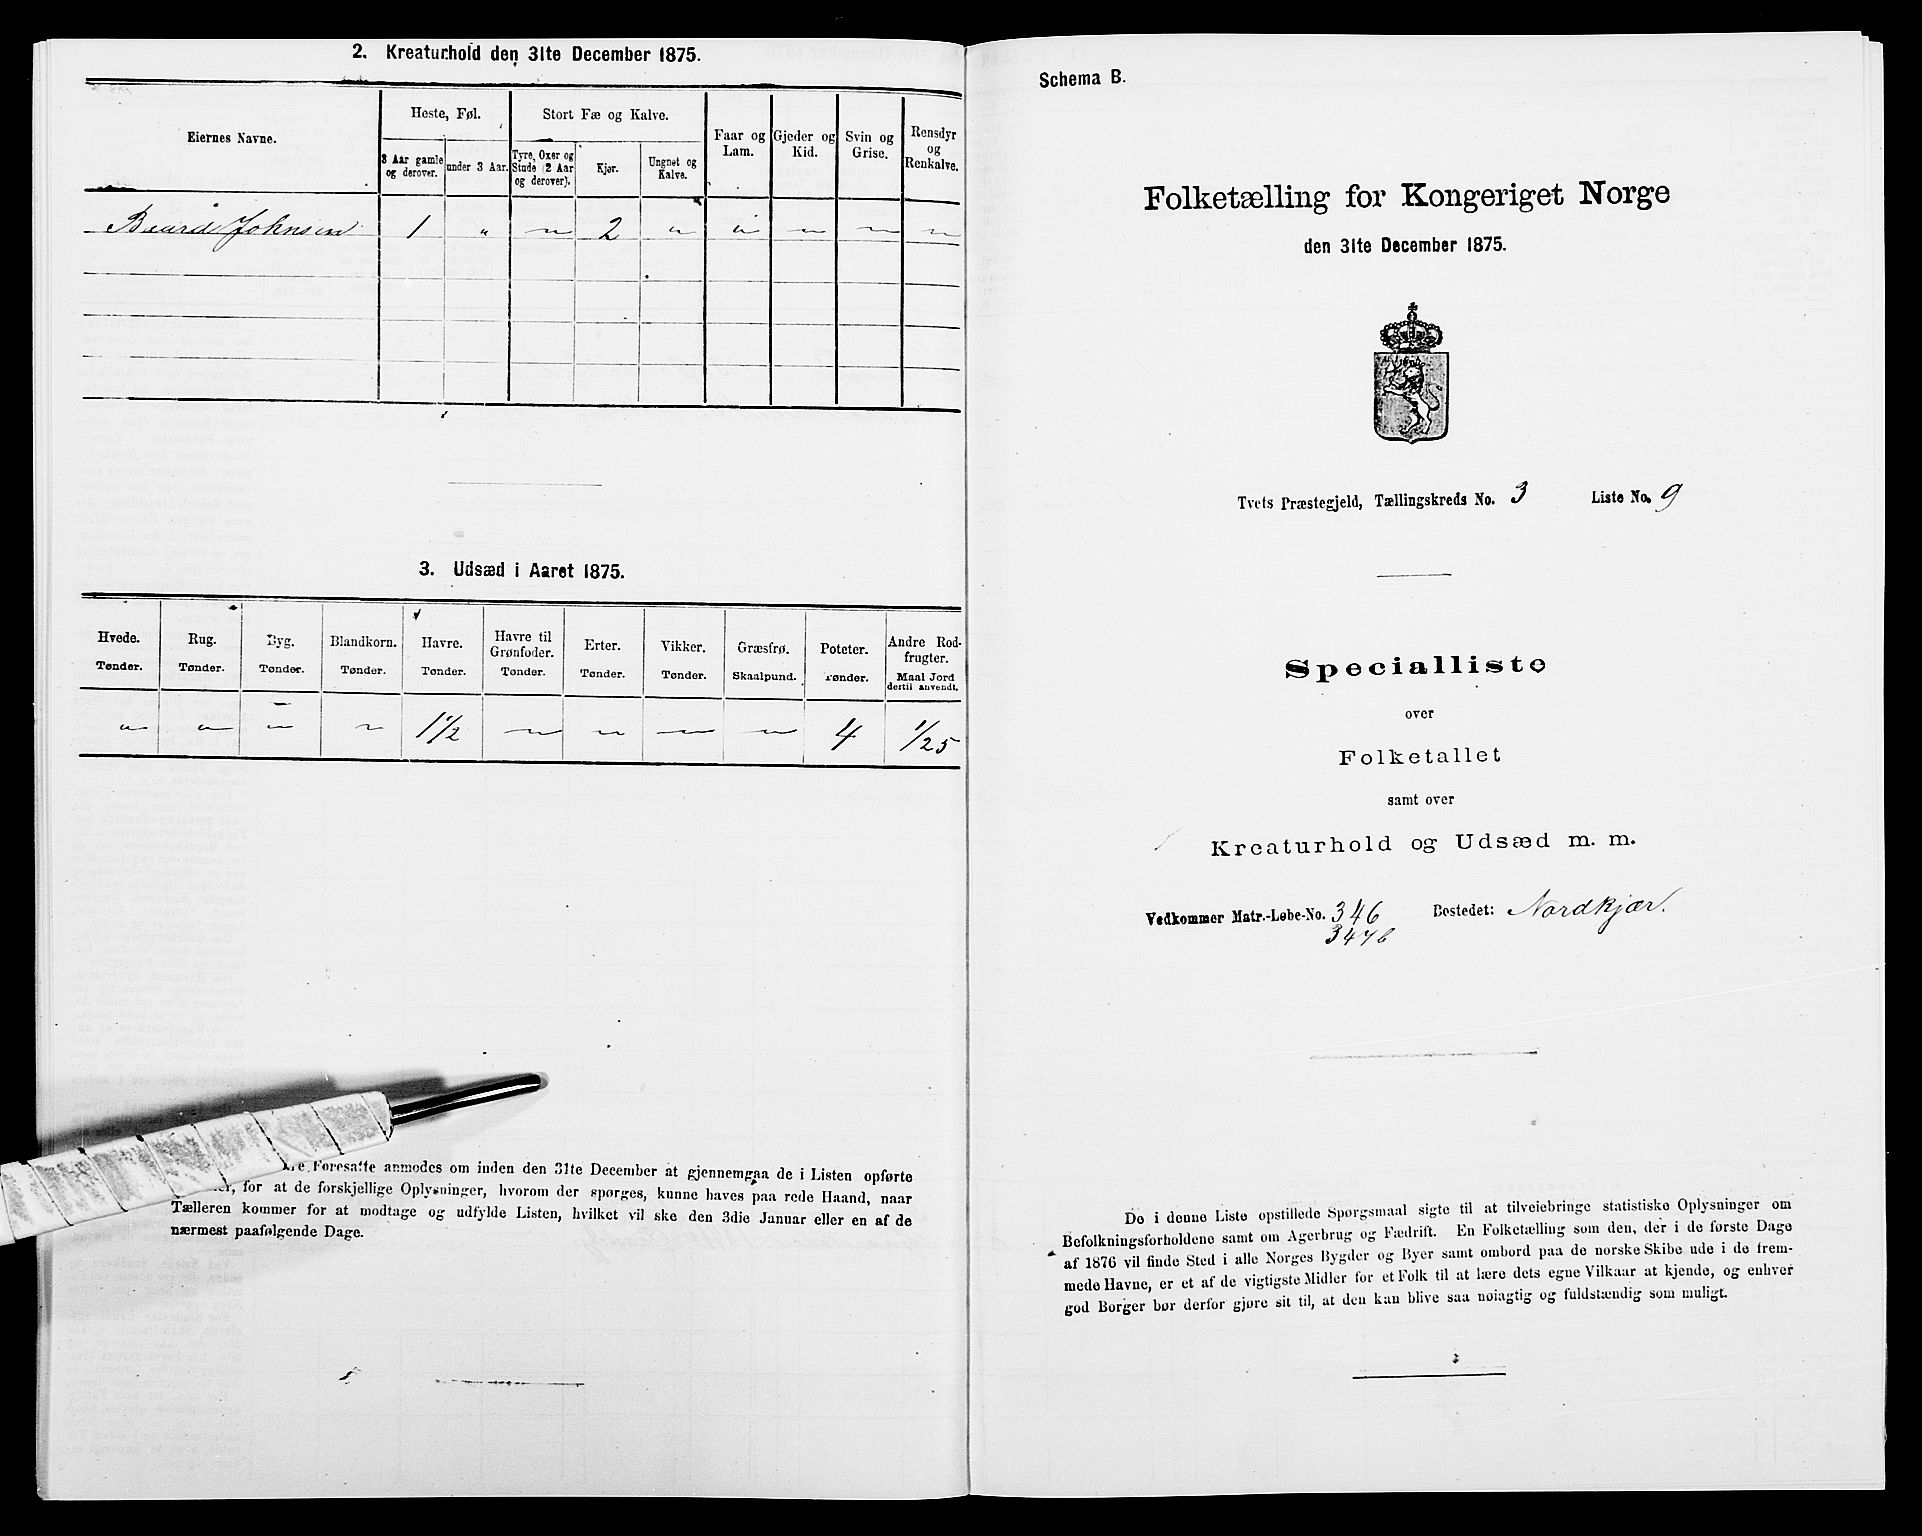 2. Kreaturhold den 31te December 1875.
Eiernes Navne.
Heste, Føl.
Stort Fæ og Kalve.
Faar og Lam.
Gjeder og Kid.
Svin og Grise.
Rensdyr og Renkalve.
3 Aar gamle og derover.
under 3 Aar.
Tyre, Oxer og Stude (2 Aar og derover).
Kjør.
Ungnet og Kalve.
Baard Johnsen 1 " " 2 " " " " "
3. Udsæd i Aaret 1875.
Hvede. Tønder.
Rug. Tønder.
Byg. Tønder.
Blandkorn. Tønder.
Havre. Tønder.
Havre til Grønfoder. Tønder.
Erter. Tønder.
Vikker. Tønder.
Græsfrø. Skaalpund.
Poteter. Tønder.
Andre Rodfrugter. Maal Jord dertil anvendt.
" " " " 1 1/2 " " " " 4 1/25
Foresatte anmodes om inden den 31te December at gjennemgaa de i Listen opførte
for at de forskjellige Oplysninger, hvorom der spørges, kunne haves paa rede Haand, naar
Tælleren kommer for at modtage og udfylde Listen, hvilket vil ske den 3die Januar eller en af de
nærmest paafølgende Dage.
Schema B.
Folketælling for Kongeriget Norge
den 31te December 1875.
Tvets Præstegjeld, Tællingskreds No. 3 Liste No. 9
Specialliste
over
Folketallet
samt over
Kreaturhold og Udsæd m. m.
Vedkommer Matr.-Løbe-No. 346 Bostedet: Nordkjær.
347b
De i denne Liste opstillede Spørgsmaal sigte til at tilveiebringe statistiske Oplysninger om
Befolkningsforholdene samt om Agerbrug og Fædrift. En Folketælling som den, der i de første Dage
af 1876 vil finde Sted i alle Norges Bygder og Byer samt ombord paa de norske Skibe ude i de frem-
mede Havne, er et af de vigtigste Midler for et Folk til at lære dets egne Vilkaar at kjende, og enhver
god Borger bør derfor gjøre sit til, at den kan blive saa nøiagtig og fuldstændig som muligt.